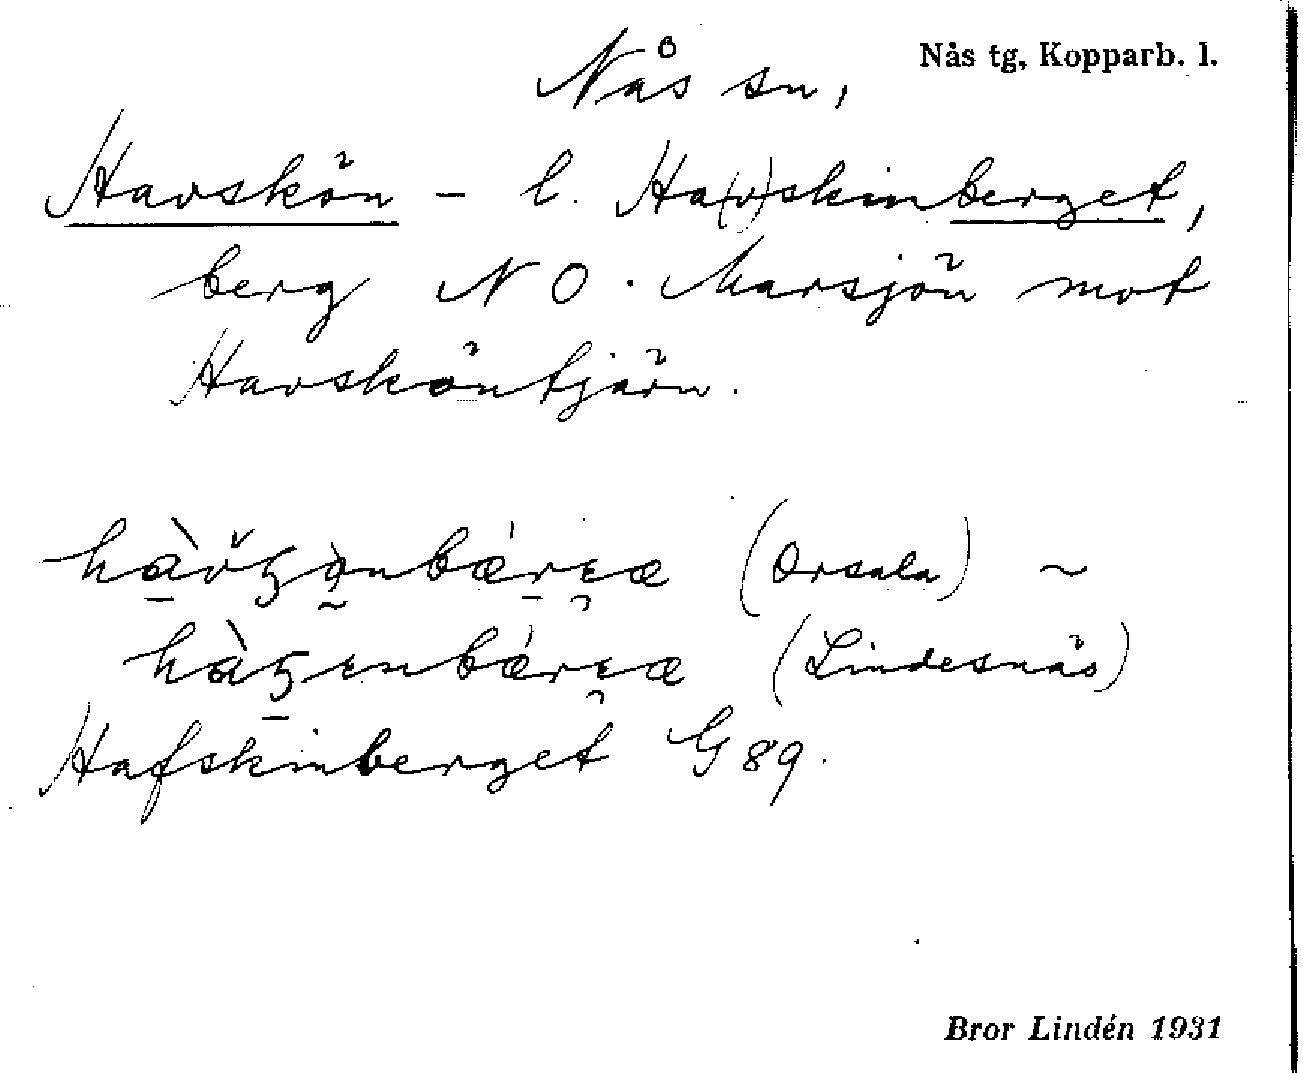 Nås tg, Kopparb. l.
Nås sn,
Havskön - l. Ha(v)skinberget,
berg NO. Marsjön mot
Havsköntjärn.
(Orsala) ~
(Lindesnäs)
Hafskinberget G 89.
Bror Lindén 1931